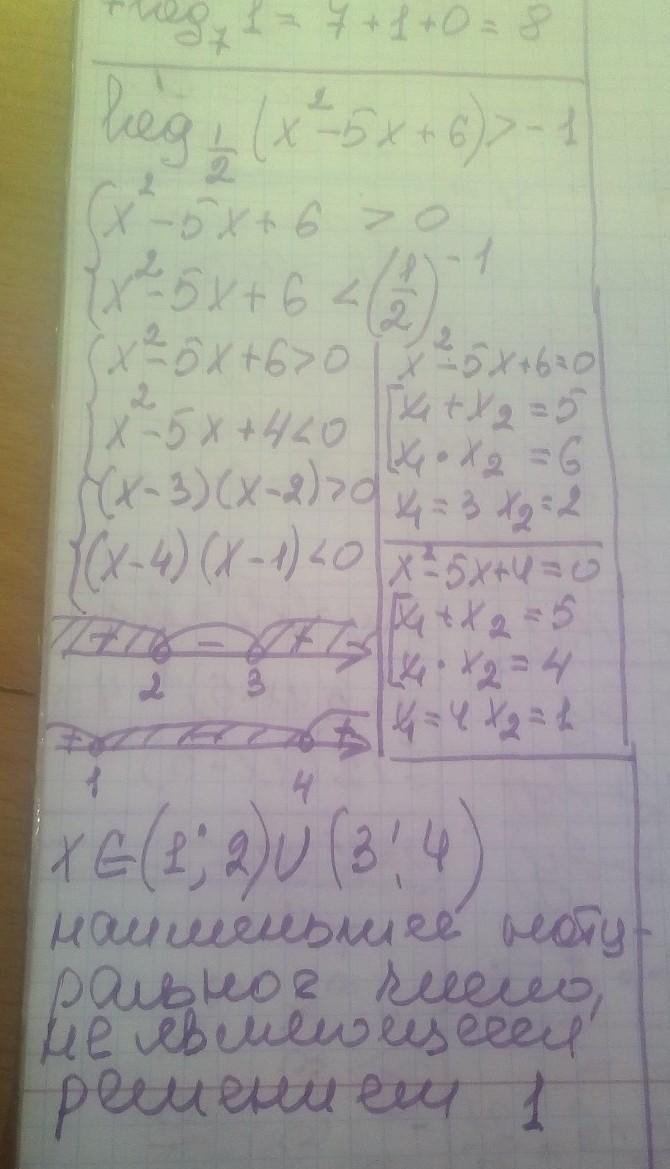 +log₇ 1 = 7 + 1 + 0 = 8
log_{1/2} (x² - 5x + 6) > -1
{ x² - 5x + 6 > 0
{ x² - 5x + 6 < (1/2)⁻¹
{ x² - 5x + 6 > 0
{ x² - 5x + 4 < 0
{ (x - 3)(x - 2) > 0
{ (x - 4)(x - 1) < 0
x² - 5x + 6 = 0
[ x₁ + x₂ = 5
[ x₁ · x₂ = 6
x₁ = 3 x₂ = 2
x² - 5x + 4 = 0
[ x₁ + x₂ = 5
[ x₁ · x₂ = 4
x₁ = 4 x₂ = 1
+ - +
2 3
+ - +
1 4
x ∈ (1; 2) ∪ (3; 4)
наименьшее нату-
ральное число,
не являющееся
решением 1